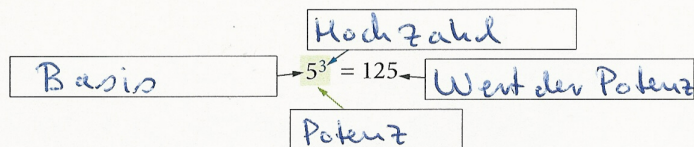 Hochzahl
Basis 5³ = 125 Wert der Potenz
Potenz